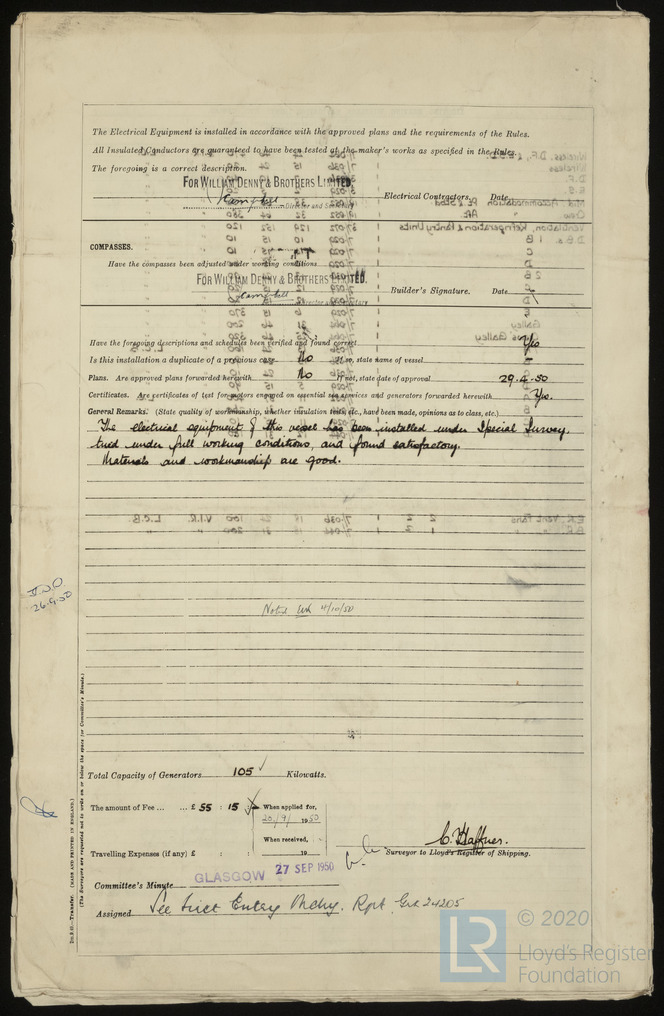 The Electrical Equipment is installed in accordance with the approved plans and the requirements of the Rules.
All Insulated Conductors are guaranteed to have been tested at the maker's works as specified in the Rules.
The foregoing is a correct description.
FOR WILLIAM DENNY & BROTHERS LIMITED.
Campbell Director and Secretary Electrical Contractors. Date
COMPASSES.
Have the compasses been adjusted under working conditions
FOR WILLIAM DENNY & BROTHERS LIMITED.
Campbell Director and Secretary Builder's Signature. Date
Have the foregoing descriptions and schedules been verified and found correct Yes
Is this installation a duplicate of a previous case No If so, state name of vessel –
Plans. Are approved plans forwarded herewith No If not, state date of approval 29.4.50
Certificates. Are certificates of test for motors engaged on essential sea services and generators forwarded herewith Yes.
General Remarks. (State quality of workmanship, whether insulation tests, etc., have been made, opinions as to class, etc.)
The electrical equipment of this vessel has been installed under Special Survey,
tried under full working conditions, and found satisfactory.
Materials and workmanship are good.
26.9.50
Noted 4/10/50
Total Capacity of Generators 105 Kilowatts.
The amount of Fee ... ... £ 55 : 15 : When applied for,
20/9/ 1950
When received,
19
Travelling Expenses (if any) £ : :
C. Haffner.
Surveyor to Lloyd's Register of Shipping.
Committee's Minute GLASGOW 27 SEP 1950
Assigned See First Entry Mchy. Rpt. Grk 24205
2m.9.48.—Transfer. (MADE AND PRINTED IN ENGLAND.)
(The Surveyors are requested not to write on or below the space for Committee's Minute.)
LR © 2020
Lloyd's Register
Foundation